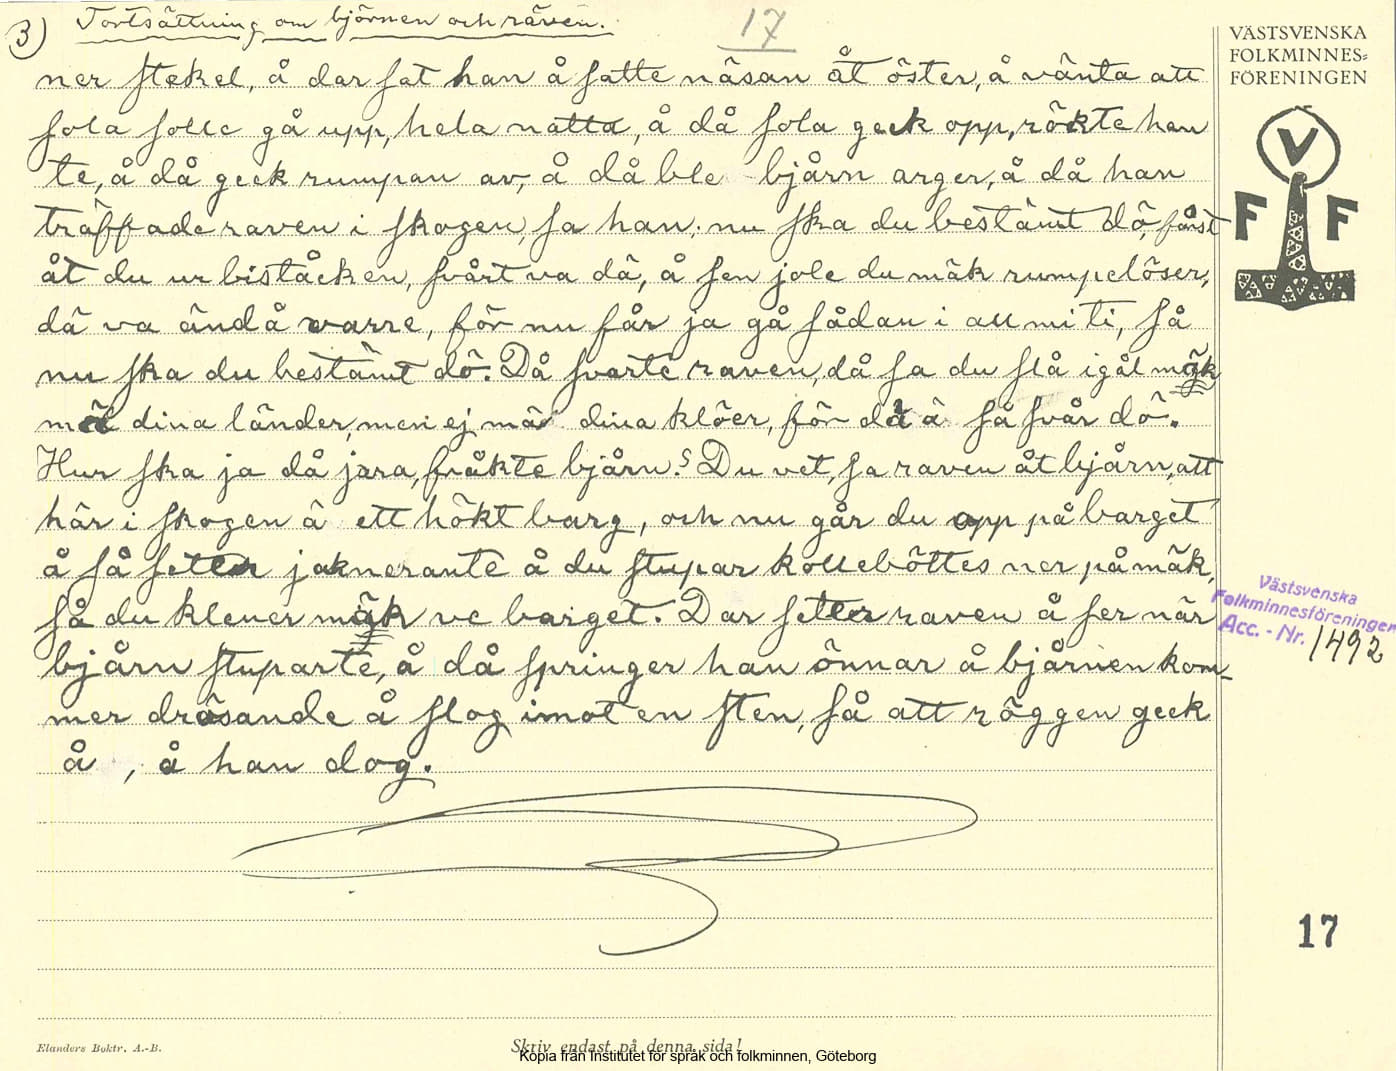 3) Fortsättning om björnen och räven.
17
ner stekel, å dar sat han å satte näsan åt öster, å vänta att
sola solle gå upp, hela natta, å då sola geck opp, rökte han
te, å då geck rumpan av, å då ble bjårn arger, å då han
träffade raven i skogen, sa han: nu ska du bestämt dö, fårst
åt du ur biståcken, svårt va dä, å sen jole du mäk rumpelöser,
dä va ändå varre, för nu får ja gå sådan i all mi ti, så
nu ska du bestämt dö. Då svarte raven, då sa du slå igål mäk
mäd dina länder, men ej mä dina klöer, för dä ä så svår dö.
Hur ska ja då jara, fråkte bjårn? Du vet, sa raven åt bjårn, att
här i skogen ä ett hökt barg, och nu går du opp på barget
å så setter jaknerante å du stupar kolleböttes ner på mäk,
så du klener mäk ve barget. Dar setter raven å ser när
bjårn stuparte, å då springer han önnar å bjårnen kom-
mer dräsande å slog imot en sten, så att röggen geck
å, å han dog.
VÄSTSVENSKA
FOLKMINNES-
FÖRENINGEN
V
F F
Västsvenska
Folkminnesföreningen
Acc. - Nr. 1492
17
Elanders Boktr. A.-B.
Skriv endast på denna sida!
Kopia från Institutet för språk och folkminnen, Göteborg